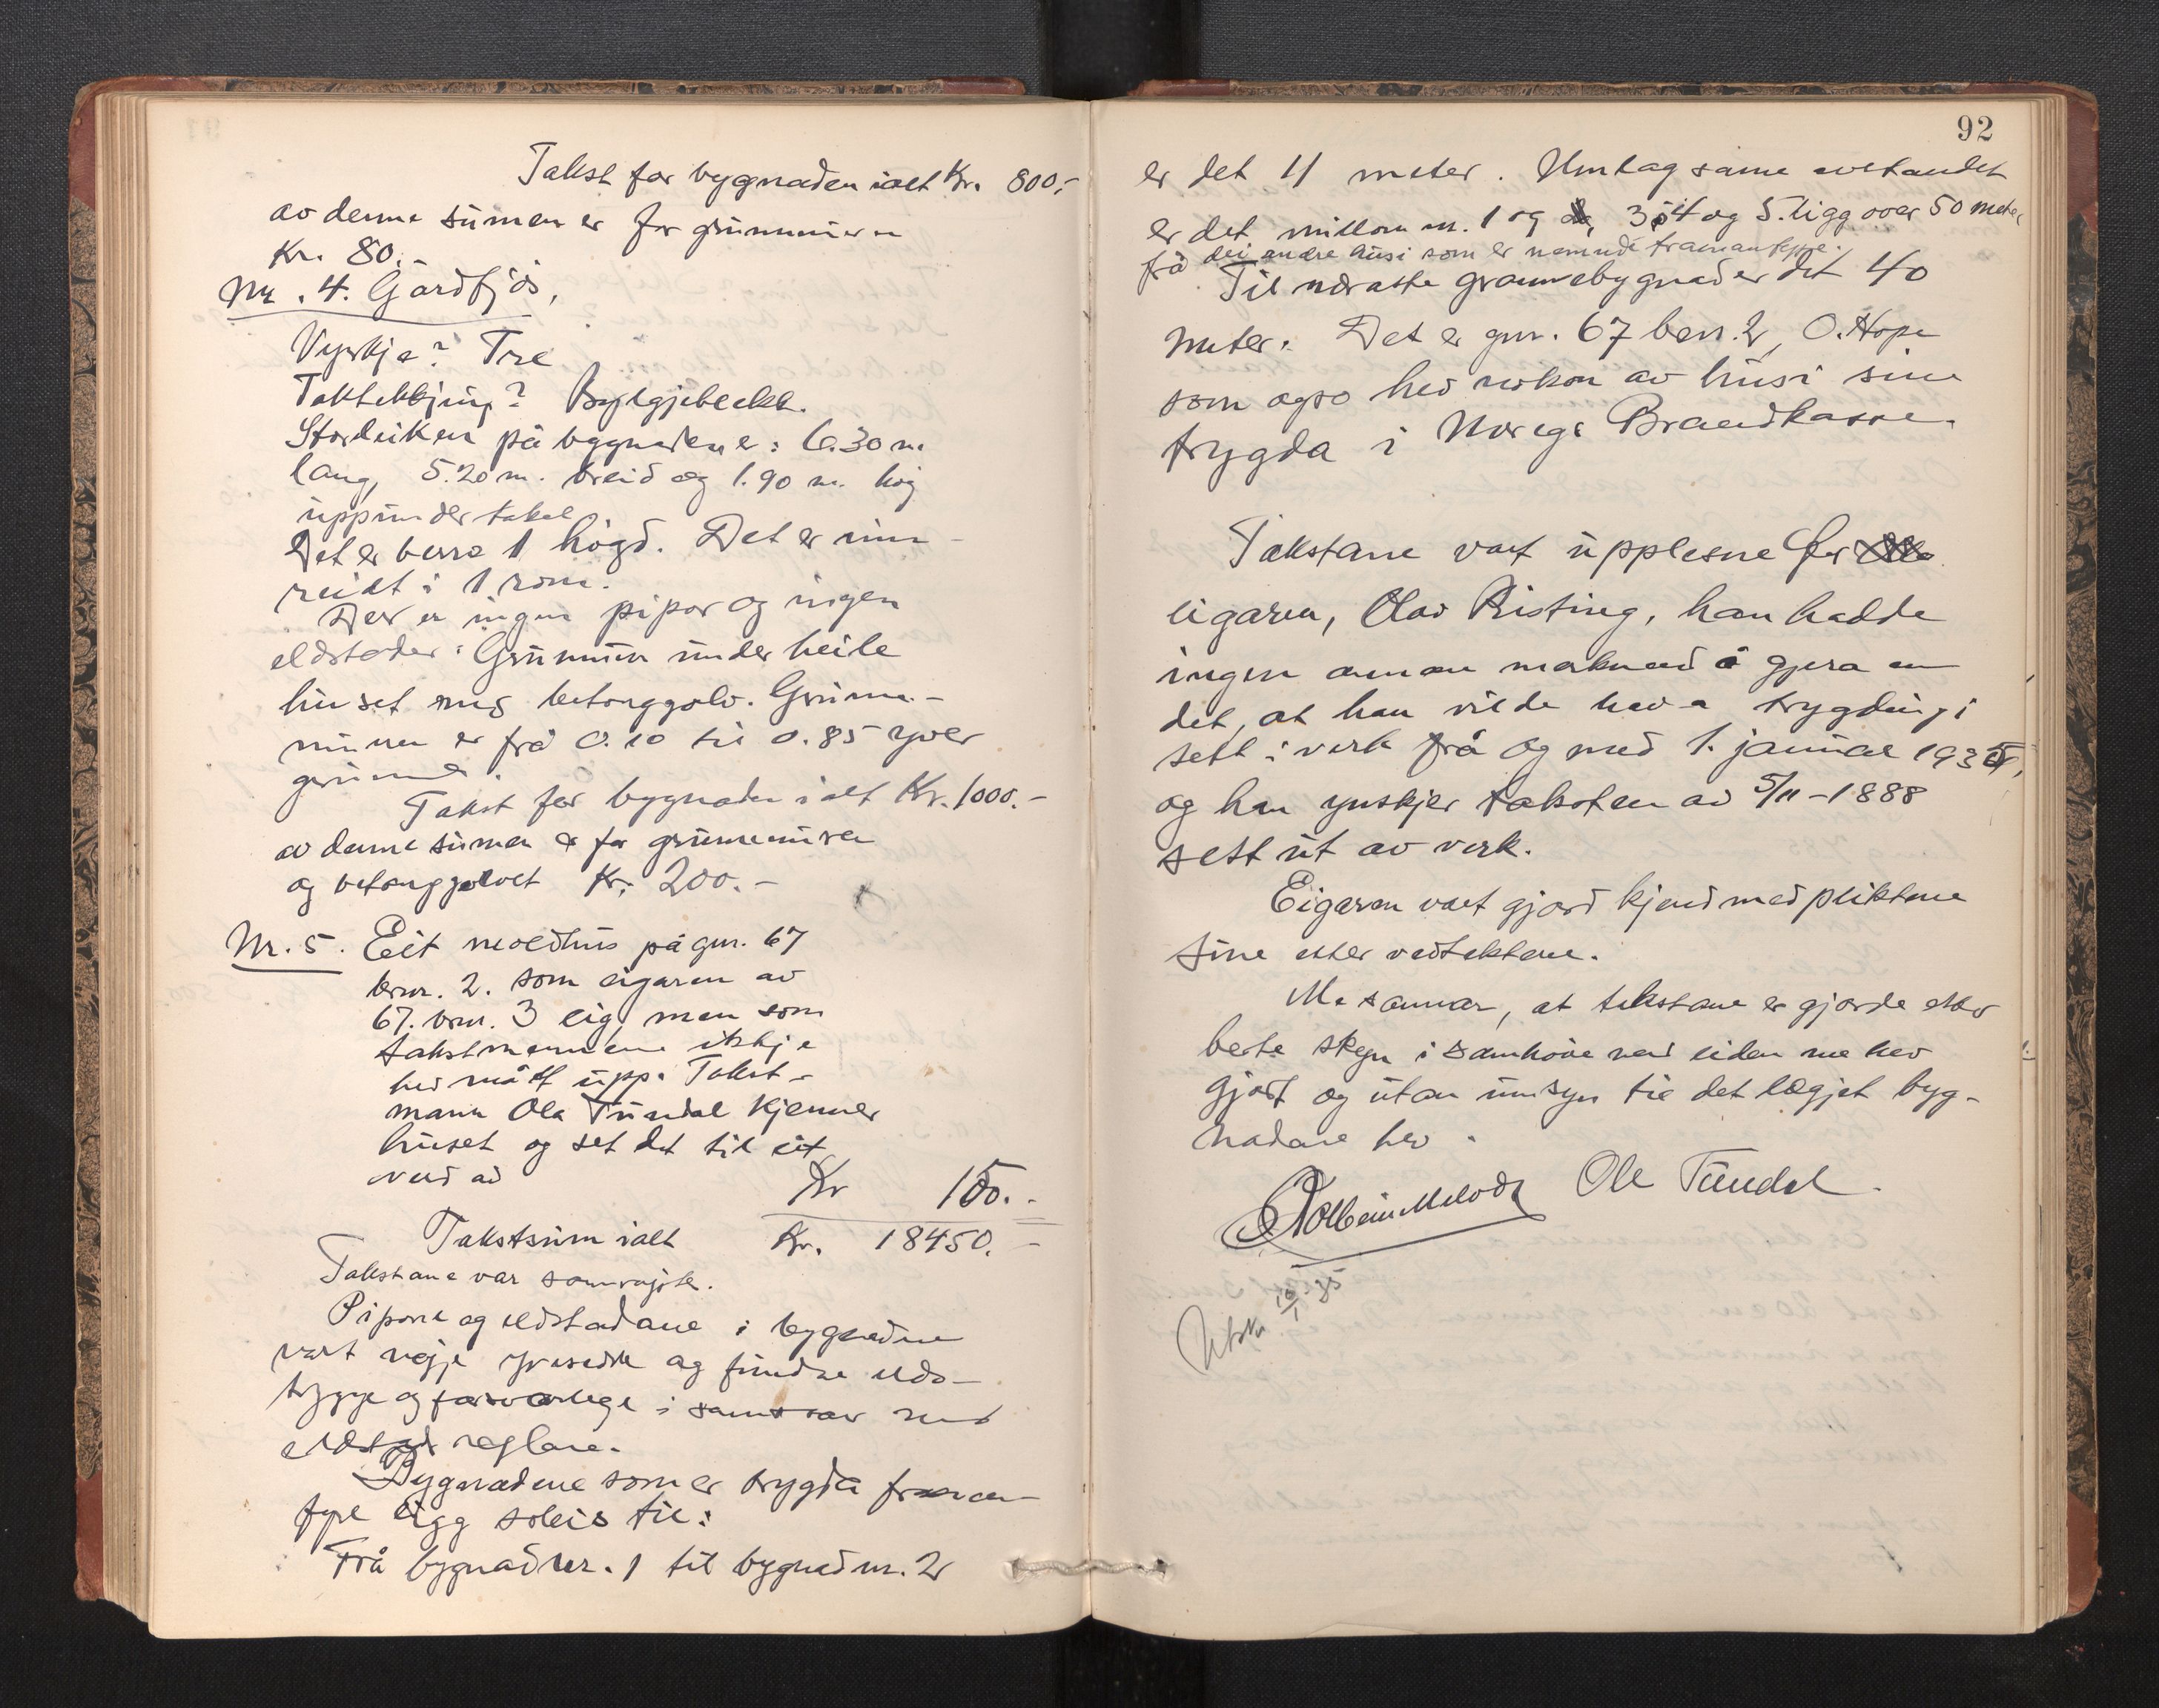 Takst for bygnaden ialt Kr. 800,-
av denne sumen er for grunnmuren
Kr. 80.-
Nr. 4. Gardfjøs,
Vyrkje? Tre
Taktekkjing? Bylgjeblekk.
Storleiken på bygnadene: 6.30 m.
lang, 5.20 m. breid og 1.90 m. høg
uppunder taket
Det er berre 1 høgd. Det er inn-
reidt i 1 rom.
Der er ingen pipor og ingen
eldstader. Grunnmur under heile
huset med betonggolv. Grunn-
muren er frå 0.10 til 0.85 yver
grunnen.
Takst for bygnaden ialt Kr. 1000.-
av denne sumen er for grunnmuren
og betonggolvet Kr. 200.-
Nr. 5. Eit naldhus på gnr. 67
brnr. 2. som eigaren av
67. brnr. 3 eig, men som
takstmennene ikkje
hev målt upp. Takst-
mann Ola Tundal kjenner
huset og set det til eit
verd av
Kr 150.-
Takstsum ialt Kr. 18450.-
Takstane var samrøyste.
Pipone og eldstadane i bygnadene
vart nøgje yversedde og fundne eld-
trygge og forsvarlege i samsvar med
eldstad reglane.
Bygnadene som er trygda framan-
fyre ligg soleis til:
Frå bygnad nr. 1 til bygnad nr. 2
92
er det 11 meter. Umlag same avstandet
er det millom nr. 1 og 3, 4 og 5. ligg over 50 meter
frå dei andre husi som er nemnde framanfyre.
Til næraste grannebygnad er det 40
meter. Det er gnr. 67 brnr. 2, O. Hope
som ogso hev nokon av husi sine
trygda i Noregs Brandkasse.
Takstane vart upplesne for
eigaren, Olav Risting, han hadde
ingen annan merknad å gjera en
det, at han vilde hava trygdingi
sett i verk frå og med 1. januar 1935,
og han ynskjer taksten av 5/11-1888
sett ut av verk.
Eigaren vart gjord kjend med pliktene
sine etter vedtektene.
Me sannar, at takstane er gjorde etter
beste skyn i samhøve med eiden me hev
gjort og utan umsyn til det lægjet byg-
nadane hev.
Ole Tundal.
Utskr 16/1-35